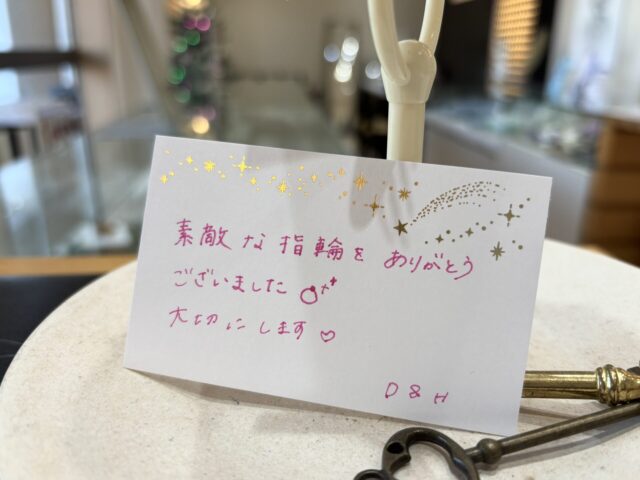 素敵な指輪をありがとう
ございました
大切にします♡
D & H